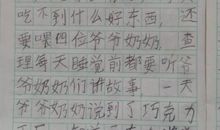 吃不到什么好东西，还
要喂四位爷爷奶奶，查
理每天睡觉前都要听爷
爷奶奶们讲故事，一天
爷爷奶奶说到了巧克力